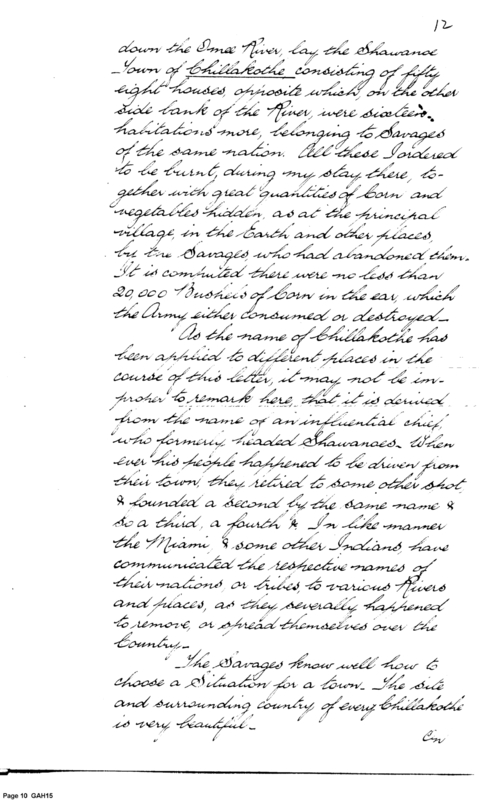 12
down the Omee River, lay the Shawanoe
Town of Chillakothe consisting of fifty
eight houses, opposite which, on the other
side bank of the River, were sixteen
habitations more, belonging to Savages
of the same nation. All these I ordered
to be burnt, during my stay there, to-
gether with great quantities of Corn and
vegetables hidden, as at the principal
village, in the Earth and other places,
by the Savages, who had abandoned them.
It is computed there were no less than
20,000 Bushels of Corn in the ear, which
the Army either consumed or destroyed_
As the name of Chillakothe has
been applied to different places in the
course of this letter, it may not be im-
proper to remark here, that it is derived
from the name of an influential chief,
who formerly headed Shawanoes_ When
ever his people happened to be driven from
their town, they retired to some other spot,
& founded a second by the same name &
so a third, a fourth & In like manner
the Miami, & some other Indians, have
communicated the respective names of
their nations, or tribes, to various Rivers
and places, as they severally happened
to remove, or spread themselves over the
Country_
The Savages know well how to
choose a Situation for a town_ The site
and surrounding country of every Chillakothe
is very beautiful_
On
Page 10 GAH15